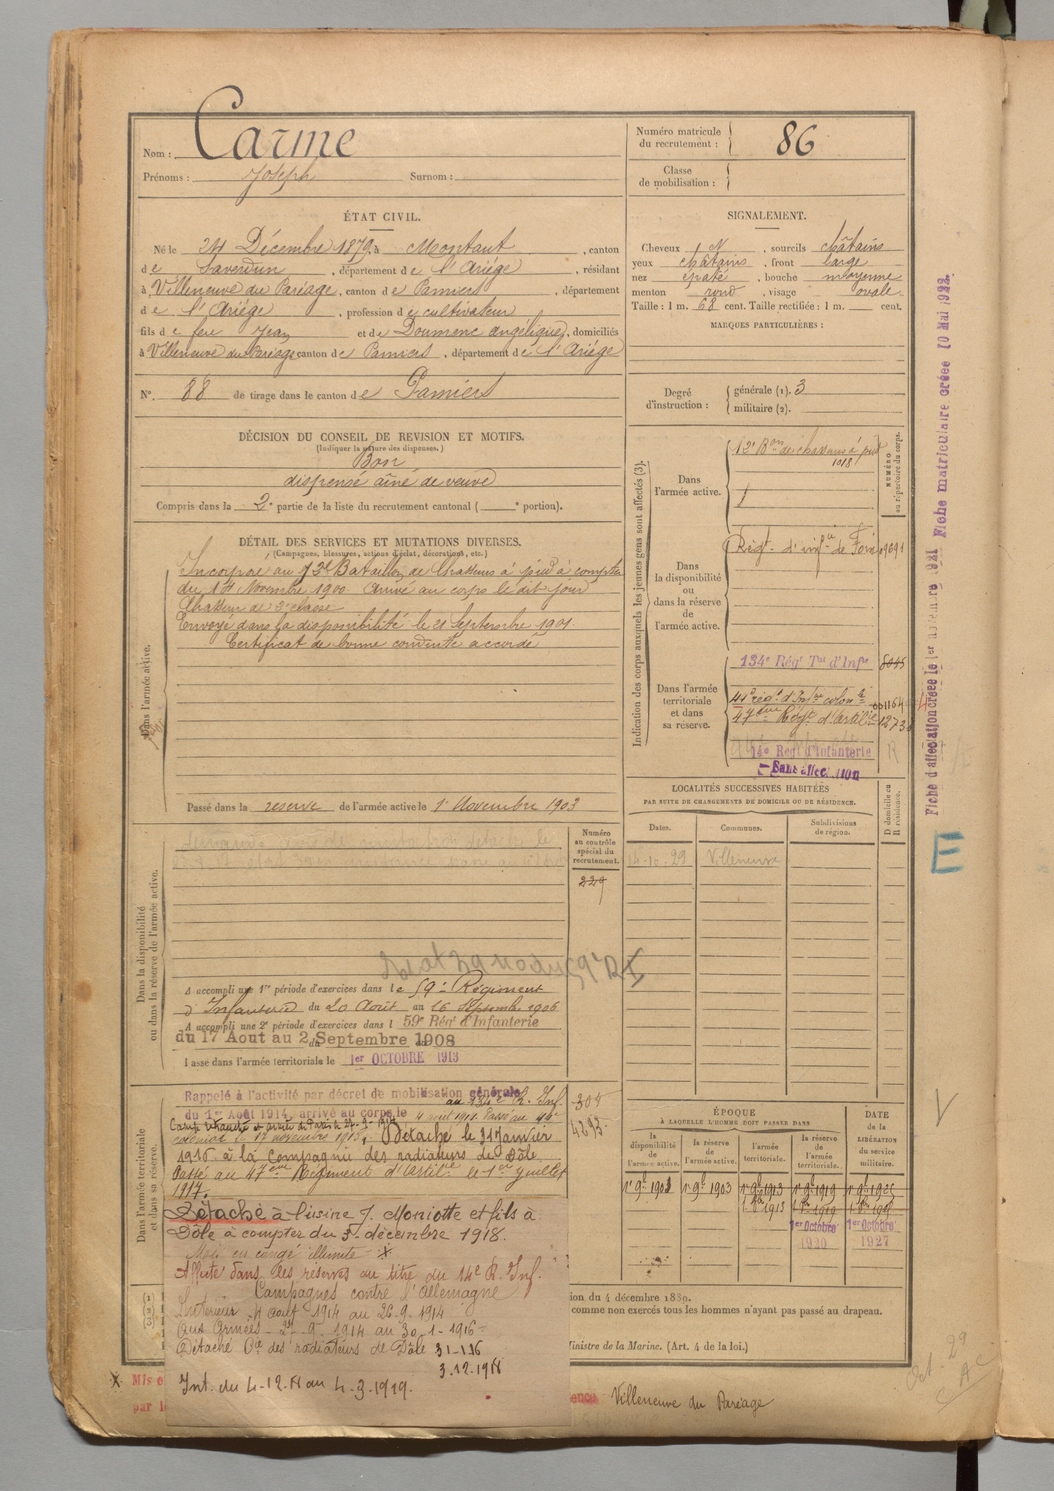 Nom : Carme
Prénoms : Joseph Surnom :
Numéro matricule
du recrutement : 86
Classe
de mobilisation :
ÉTAT CIVIL.
Né le 24 Décembre 1879, à Montaut, canton
de Saverdun, département de l'Ariége, résidant
à Villeneuve du Paréage, canton de Pamiers, département
de l'Ariége, profession de cultivateur
fils de feu Jean et de Doumenc angélique, domiciliés
à Villeneuve du Paréage canton de Pamiers, département de l'Ariége
N°. 88 de tirage dans le canton de Pamiers
SIGNALEMENT.
Cheveux N, sourcils châtains
yeux châtains, front large
nez épaté, bouche moyenne
menton rond, visage ovale
Taille : 1 m. 68 cent. Taille rectifiée : 1 m. cent.
MARQUES PARTICULIÈRES :
Degré
d'instruction :
générale (1). 3
militaire (2).
DÉCISION DU CONSEIL DE REVISION ET MOTIFS.
(Indiquer la nature des dispenses.)
Bon
dispensé aîné de veuve
Compris dans la 2e partie de la liste du recrutement cantonal ( e portion).
DÉTAIL DES SERVICES ET MUTATIONS DIVERSES.
(Campagnes, blessures, actions d'éclat, décorations, etc.)
Dans l'armée active.
Incorporé au 12e Bataillon de Chasseurs à pied à compter
du 14 Novembre 1900 arrivé au corps le dit jour
Chasseur de 2e classe
Envoyé dans la disponibilité le 21 Septembre 1901
Certificat de bonne conduite accordé
Passé dans la reserve de l'armée active le 1er Novembre 1903
Indication des corps auxquels les jeunes gens sont affectés (3).
NUMÉRO
au répertoire du corps.
Dans
l'armée active.
12e Bon de chasseurs à pied
1018
Dans
la disponibilité
ou
dans la réserve
de
l'armée active.
Régt. d'infie de Foix
Dans l'armée
territoriale
et dans
sa réserve.
134e Régt Tal d'Infie 8045
41e régt d'Infie colonle
47eme Régt d'Artille
14e Regt d'Infanterie
Sans affectation
LOCALITÉS SUCCESSIVES HABITÉES
PAR SUITE DE CHANGEMENTS DE DOMICILE OU DE RÉSIDENCE.
Dates.
Communes.
Subdivisions
de région.
D domicile ou
R résidence.
10-29 Villeneuve
Dans la disponibilité
ou dans la réserve de l'armée active.
Numéro
au contrôle
spécial du
recrutement.
229
A accompli une 1re période d'exercices dans le 59e Régiment
d'Infanterie du 20 Août au 16 Septembre 1906
A accompli une 2e période d'exercices dans l 59e Régt d'Infanterie
du 17 Aout au 2 Septembre 1908
Passé dans l'armée territoriale le 1er OCTOBRE 1913
Dans l'armée territoriale
et dans sa réserve.
Rappelé à l'activité par décret de mobilisation générale
du 1er Août 1914, arrivé au corps le
au 134e R. Inf.
4 août 1914. Passé au
colonial le 17 novembre 1915. Détaché le 31 Janvier
1916 à la Compagnie des radiateurs de Dôle
Passé au 47eme Régiment d'Artille le 1er juillet
1917.
Détaché à l'usine J. Moniotte et fils à
Dôle à compter du 3 décembre 1918.
Mis en congé illimité
Affecté dans les réserves au titre du 14e R. Inf.
Campagnes contre l'Allemagne
Intérieur 4 aout 1914 au 26.9.1914
Aux Armées - 27-9.1914 au 30-1-1916
Détaché Cie des radiateurs de Dôle 31-1-16
3.12.1918
Int. du 4-12-18 au 4-3.1919.
ÉPOQUE
À LAQUELLE L'HOMME DOIT PASSER DANS
la
disponibilité
de
l'armée active.
la réserve
de
l'armée active.
l'armée
territoriale.
la réserve
de
l'armée
territoriale.
DATE
de la
LIBÉRATION
du service
militaire.
1er 9bre 1901 1er 9bre 1903 1er 9bre 1913 1er 9bre 1919 1er 9bre 1925
1er Octobre 1er Octobre
1920 1927
ion du 4 décembre 1889.
comme non exercés tous les hommes n'ayant pas passé au drapeau.
Ministre de la Marine. (Art. 4 de la loi.)
Villeneuve du Paréage
Fiche d'affectation créée le 1er novembre 1921 Fiche matriculaire créée 10 Mai 1922.
E